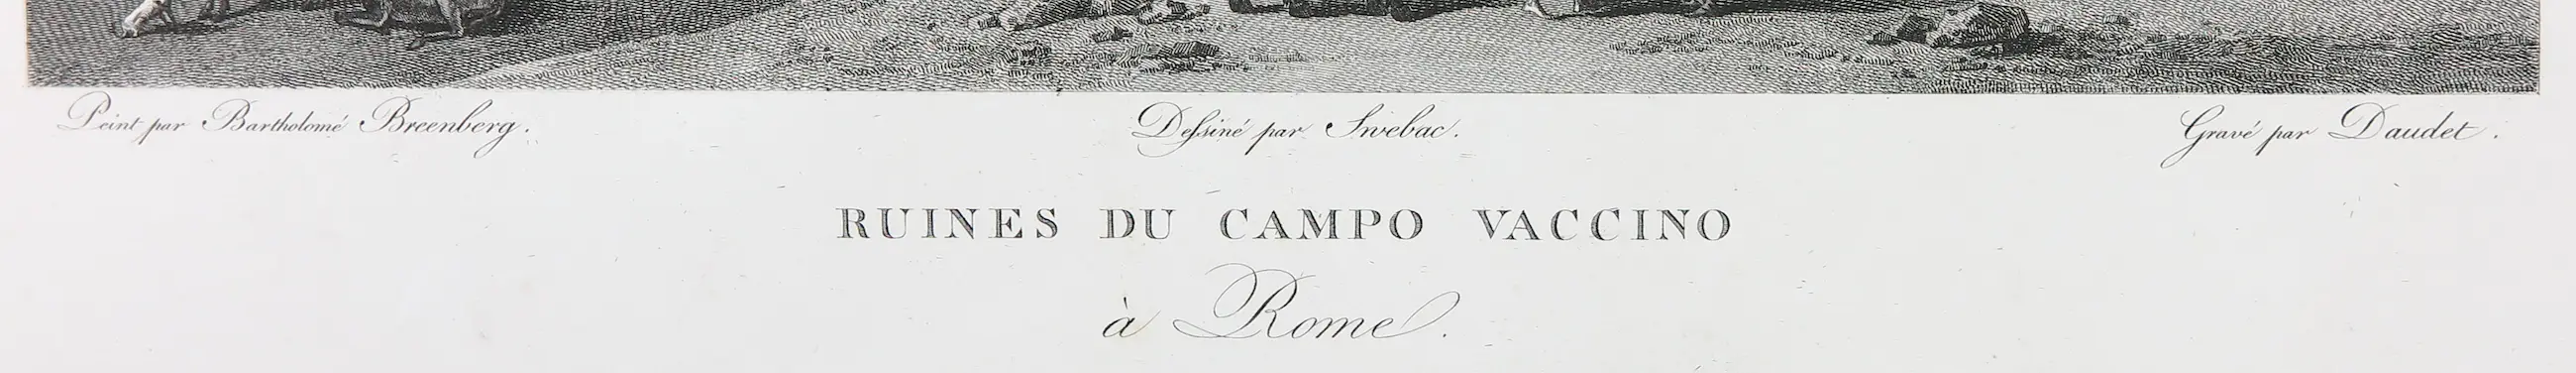 Peint par Bartholomé Breenberg. Dessiné par Swebac. Gravé par Daudet.
RUINES DU CAMPO VACCINO
à Rome.